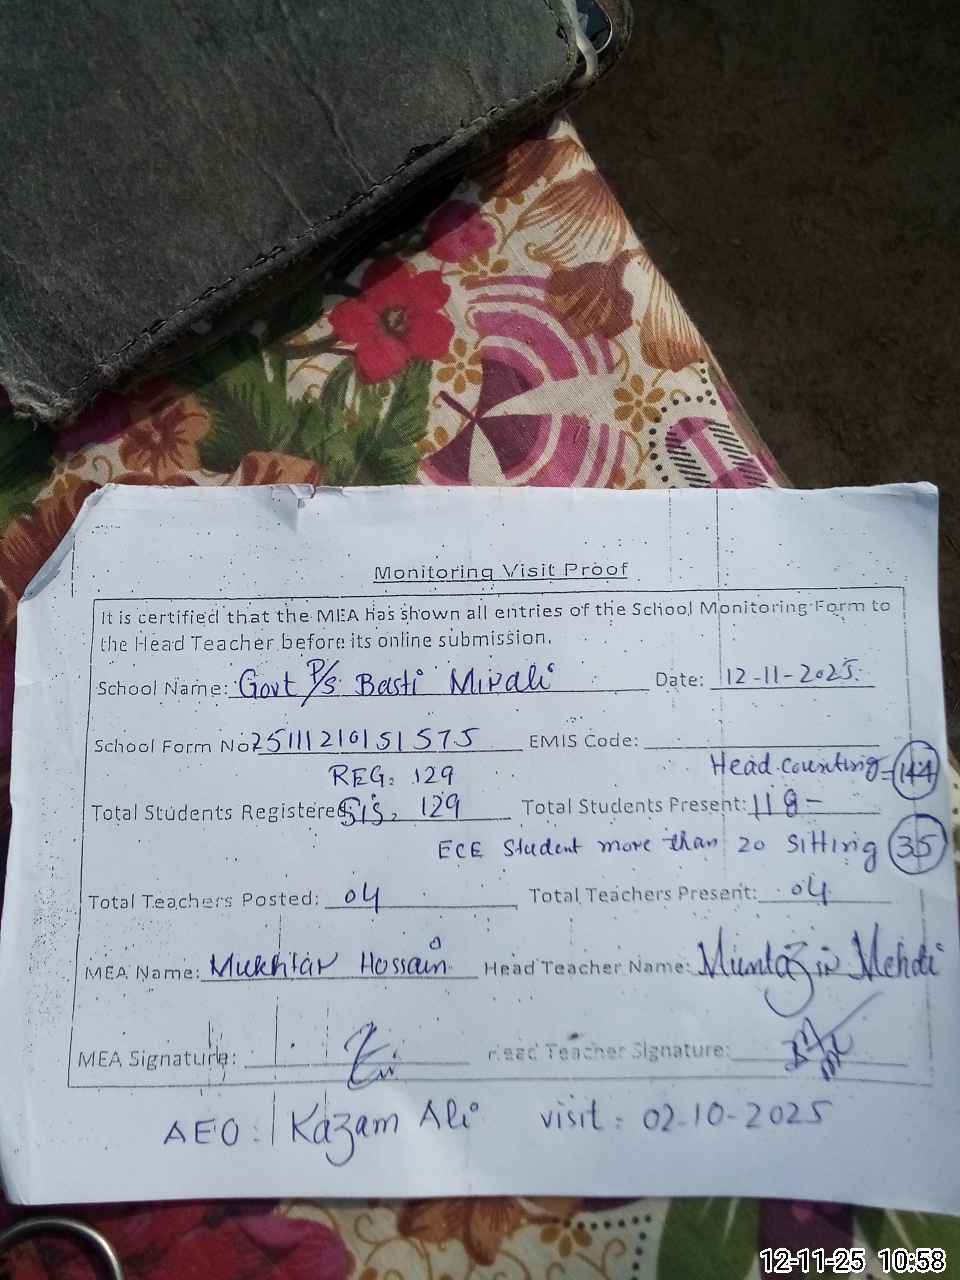 Monitoring Visit Proof
It is certified that the MEA has shown all entries of the School Monitoring Form to
the Head Teacher before its online submission.
School Name: Govt P/s Basti Mirali Date: 12-11-2025
School Form No: EMIS Code:
REG: 129 Head counting = 144
Total Students Registered: SIS: 129 Total Students Present: 118-
ECE Student more than 20 Sitting 35
Total Teachers Posted: 04 Total Teachers Present: 04
MEA Name: Mukhtar Hossain Head Teacher Name: Muntazir Mehdi
MEA Signature: Head Teacher Signature:
AEO: Kazam Ali visit: 02-10-2025
12-11-25 10:58